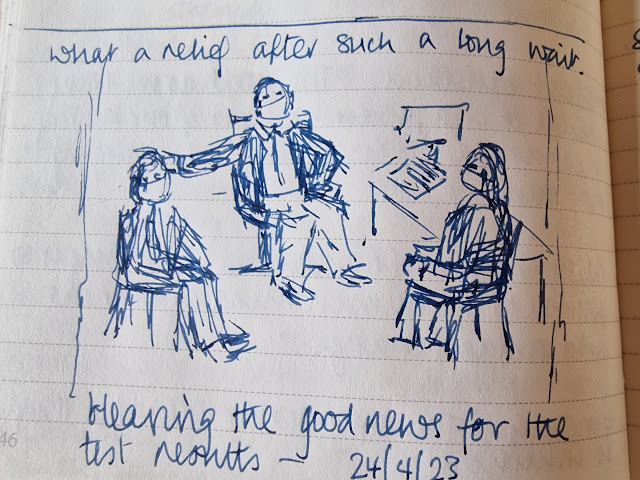 what a relief after such a long wait.
Hearing the good news for the
test results — 24/4/23
46